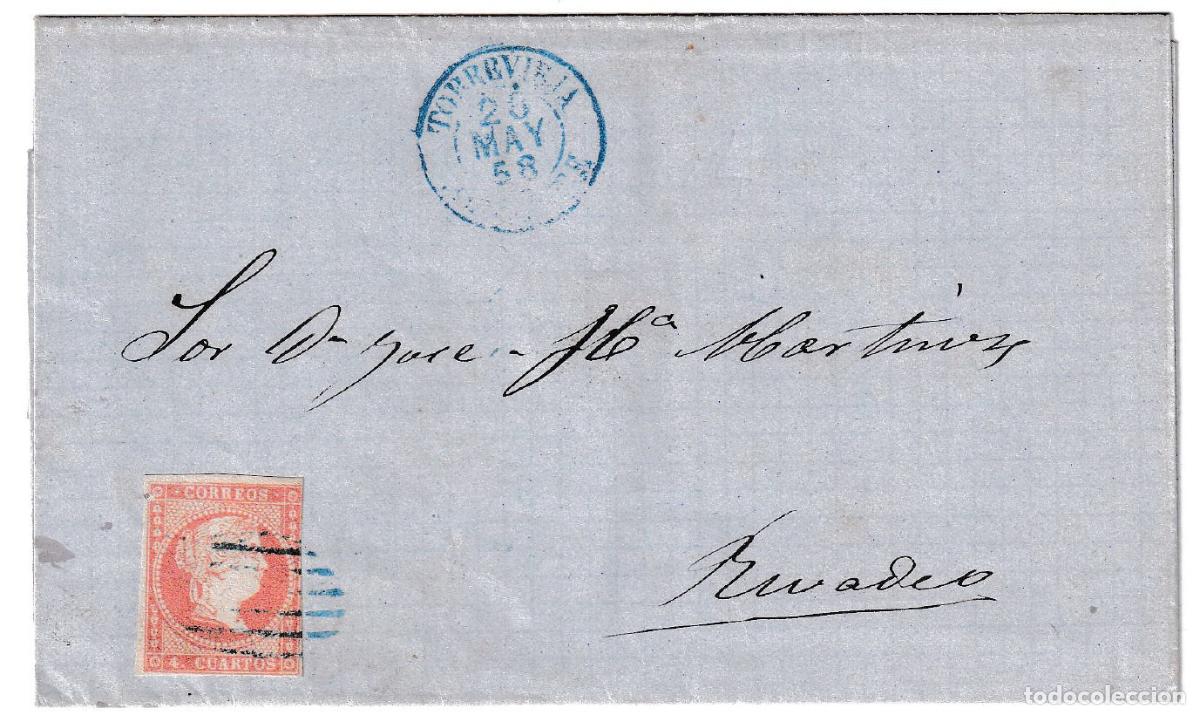 TORREVIEJA
20
MAY
58
Sor Dn Jose Ma Martinez
Rivadeo
CORREOS
4 CUARTOS
todocoleccion